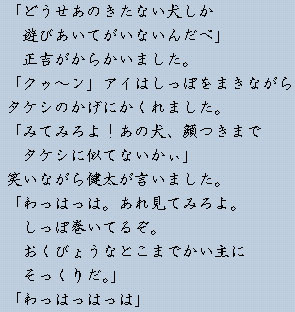 「どうせあのきたない犬しか
遊びあいてがいないんだべ」
正吉がからかいました。
「クゥ〜ン」アイはしっぽをまきながら
タケシのかげにかくれました。
「みてみろよ！あの犬、顔つきまで
タケシに似てないかぃ」
笑いながら健太が言いました。
「わっはっは。あれ見てみろよ。
しっぽ巻いてるぞ。
おくびょうなとこまでかい主に
そっくりだ。」
「わっはっはっは」